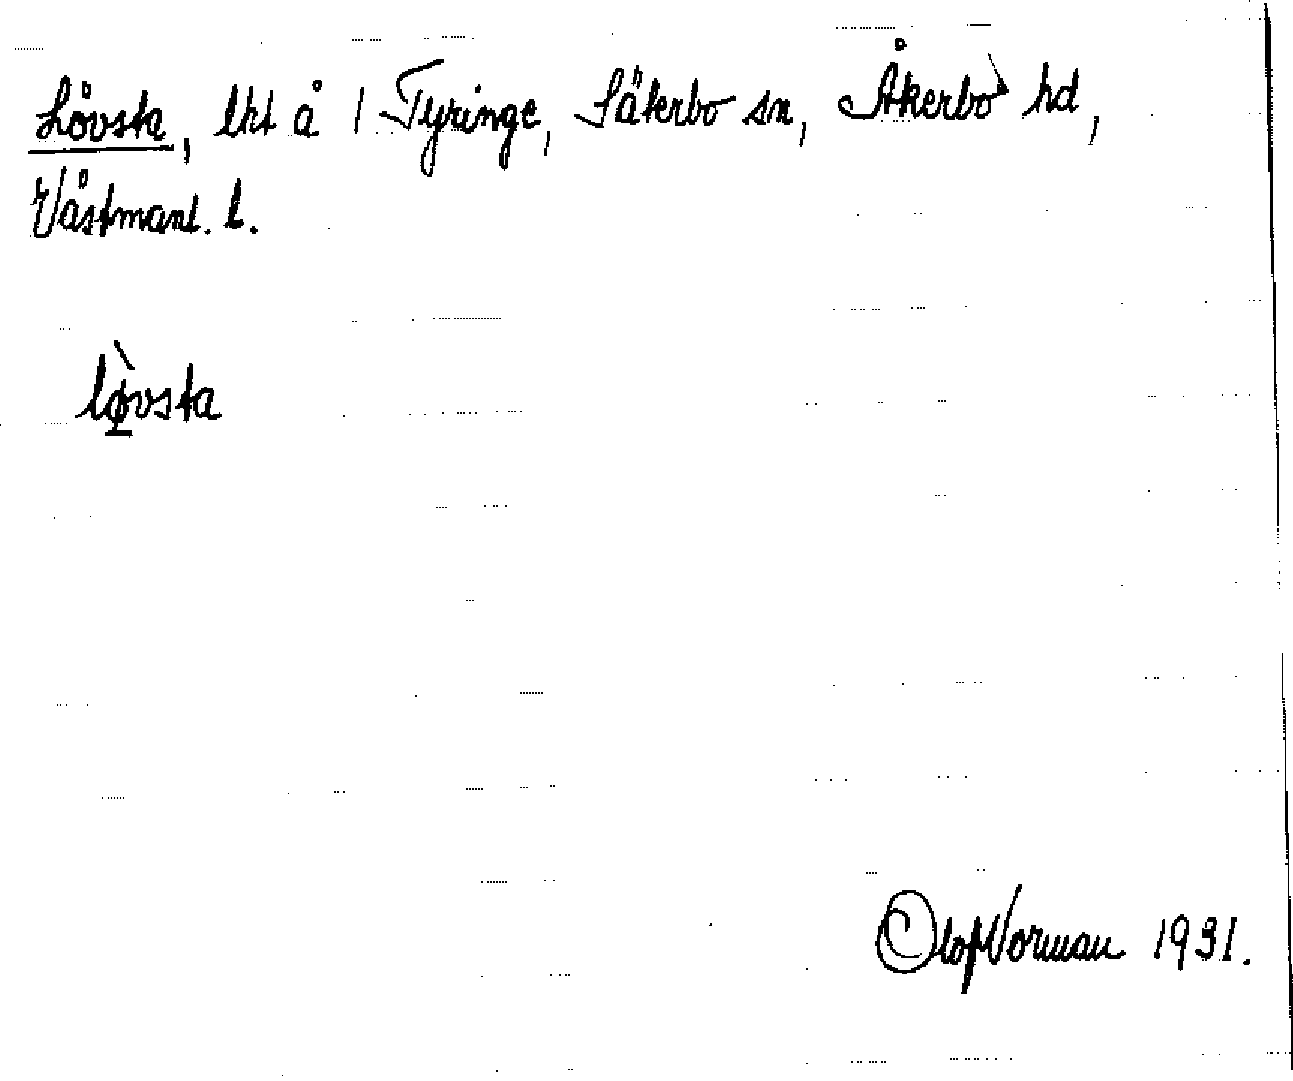 Lövsta, lht å 1 Tyringe, Säterbo sn, Åkerbo hd,
Västmanl. l.
lø̀vsta
Olof Norman 1931.